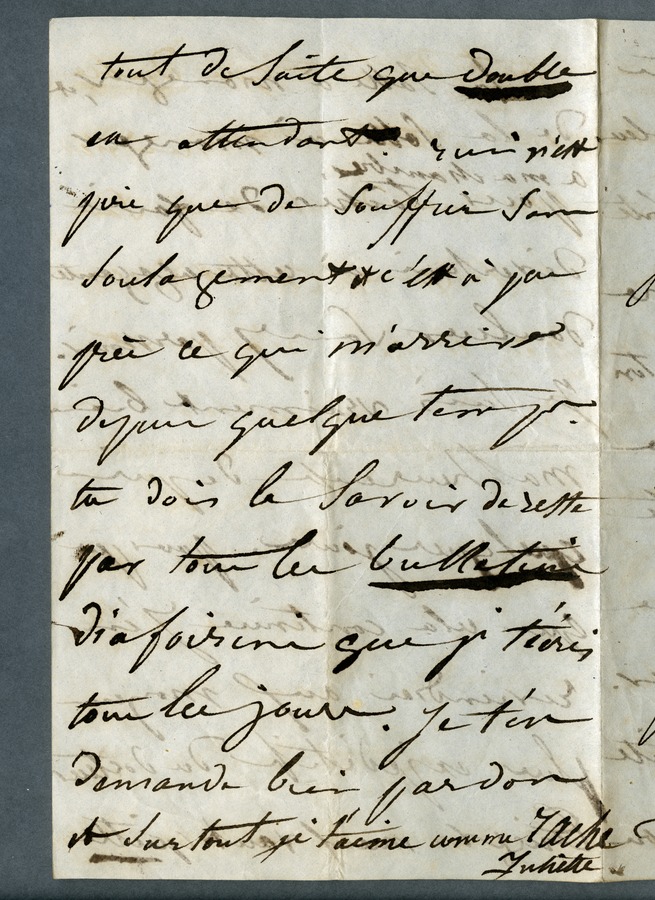 tout de suite que double
en attendant. rien n'est
pire que de souffrir sans
soulagement et c'est à peu
près ce qui m'arrive
depuis quelque temps.
tu dois le savoir de reste
par tous les bulletins
diafoirini que je t'écris
tous les jours. Je t'en
demande bien pardon
et surtout je t'aime comme
Juliette